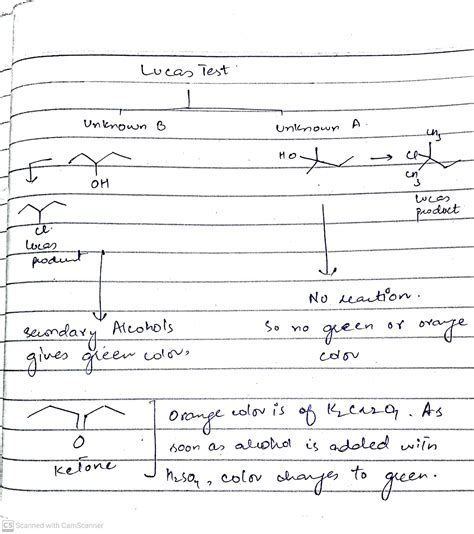 Lucas Test
Unknown B
Unknown A
CH3
HO
Cl
CH3
OH
Lucas
product
Cl
Lucas
product
No reaction.
Secondary Alcohols
So no green or orange
gives green color,
color
Orange color is of K2Cr2O7. As
O
soon as alcohol is added with
Ketone
H2SO4, color changes to green.
CS Scanned with CamScanner